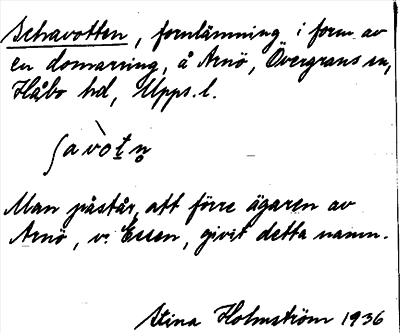 Schavotten, fornlämning i form av
en domarring, å Arnö, Övergrans sn,
Håbo hd, Upps. l.
ʃavòtn̥
Man påstår, att förre ägaren av
Arnö, v. Essen, givit detta namn.
Stina Holmström 1936